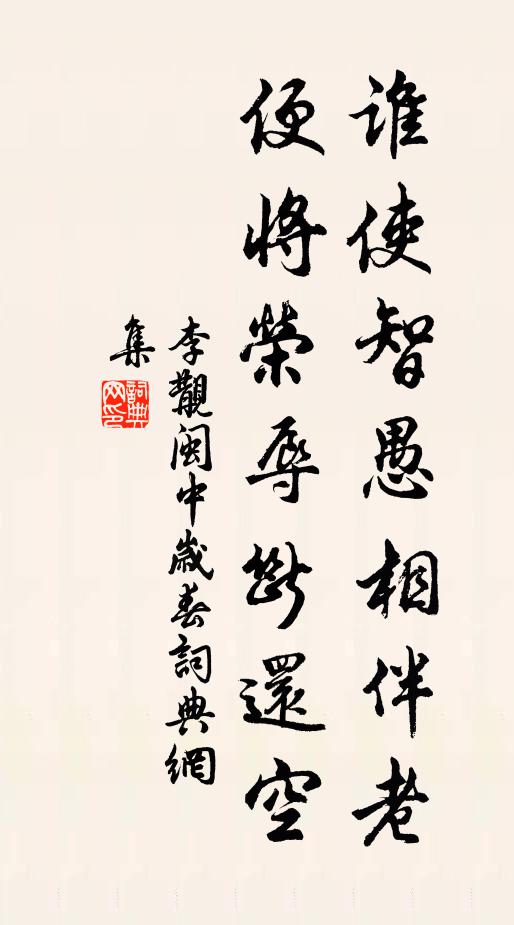 誰使智愚相伴老
便將榮辱斷還空
李覯閩中歲暮詞典網
集
詞典
网印